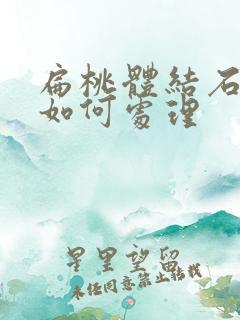 扁桃體結石
如何處理
星里望留
未经同意禁止转载